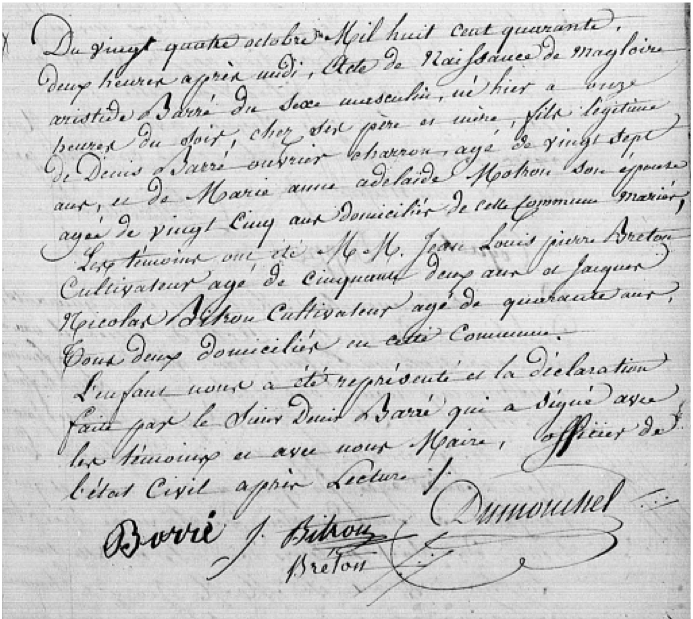 Du vingt quatre octobre Mil huit cent quarante,
deux heures après midi, Acte de Naissance de Magloire
aristide Barré du sexe masculin, né hier a onze
heures du soir, chez ses père et mère, fils légitime
de Denis Barré ouvrier charron, agé de vingt sept
ans, et de Marie anne adelaide Motron son épouse
agée de vingt Cinq ans domiciliés de cette Commune mariés,
Les témoins ont été M.M. Jean Louis pierre Breton
Cultivateur agé de cinquante deux ans et Jacques
Nicolas Bitron Cultivateur agé de quarante ans,
Tous deux domiciliés en cette Commune.
L'enfant nous a été représenté et la déclaration
faite par le Sieur Denis Barré qui a signé avec
les témoins et avec nous Maire, officier de
l'état Civil après Lecture ./.
Barré J. Bitron Dumouchel
Breton